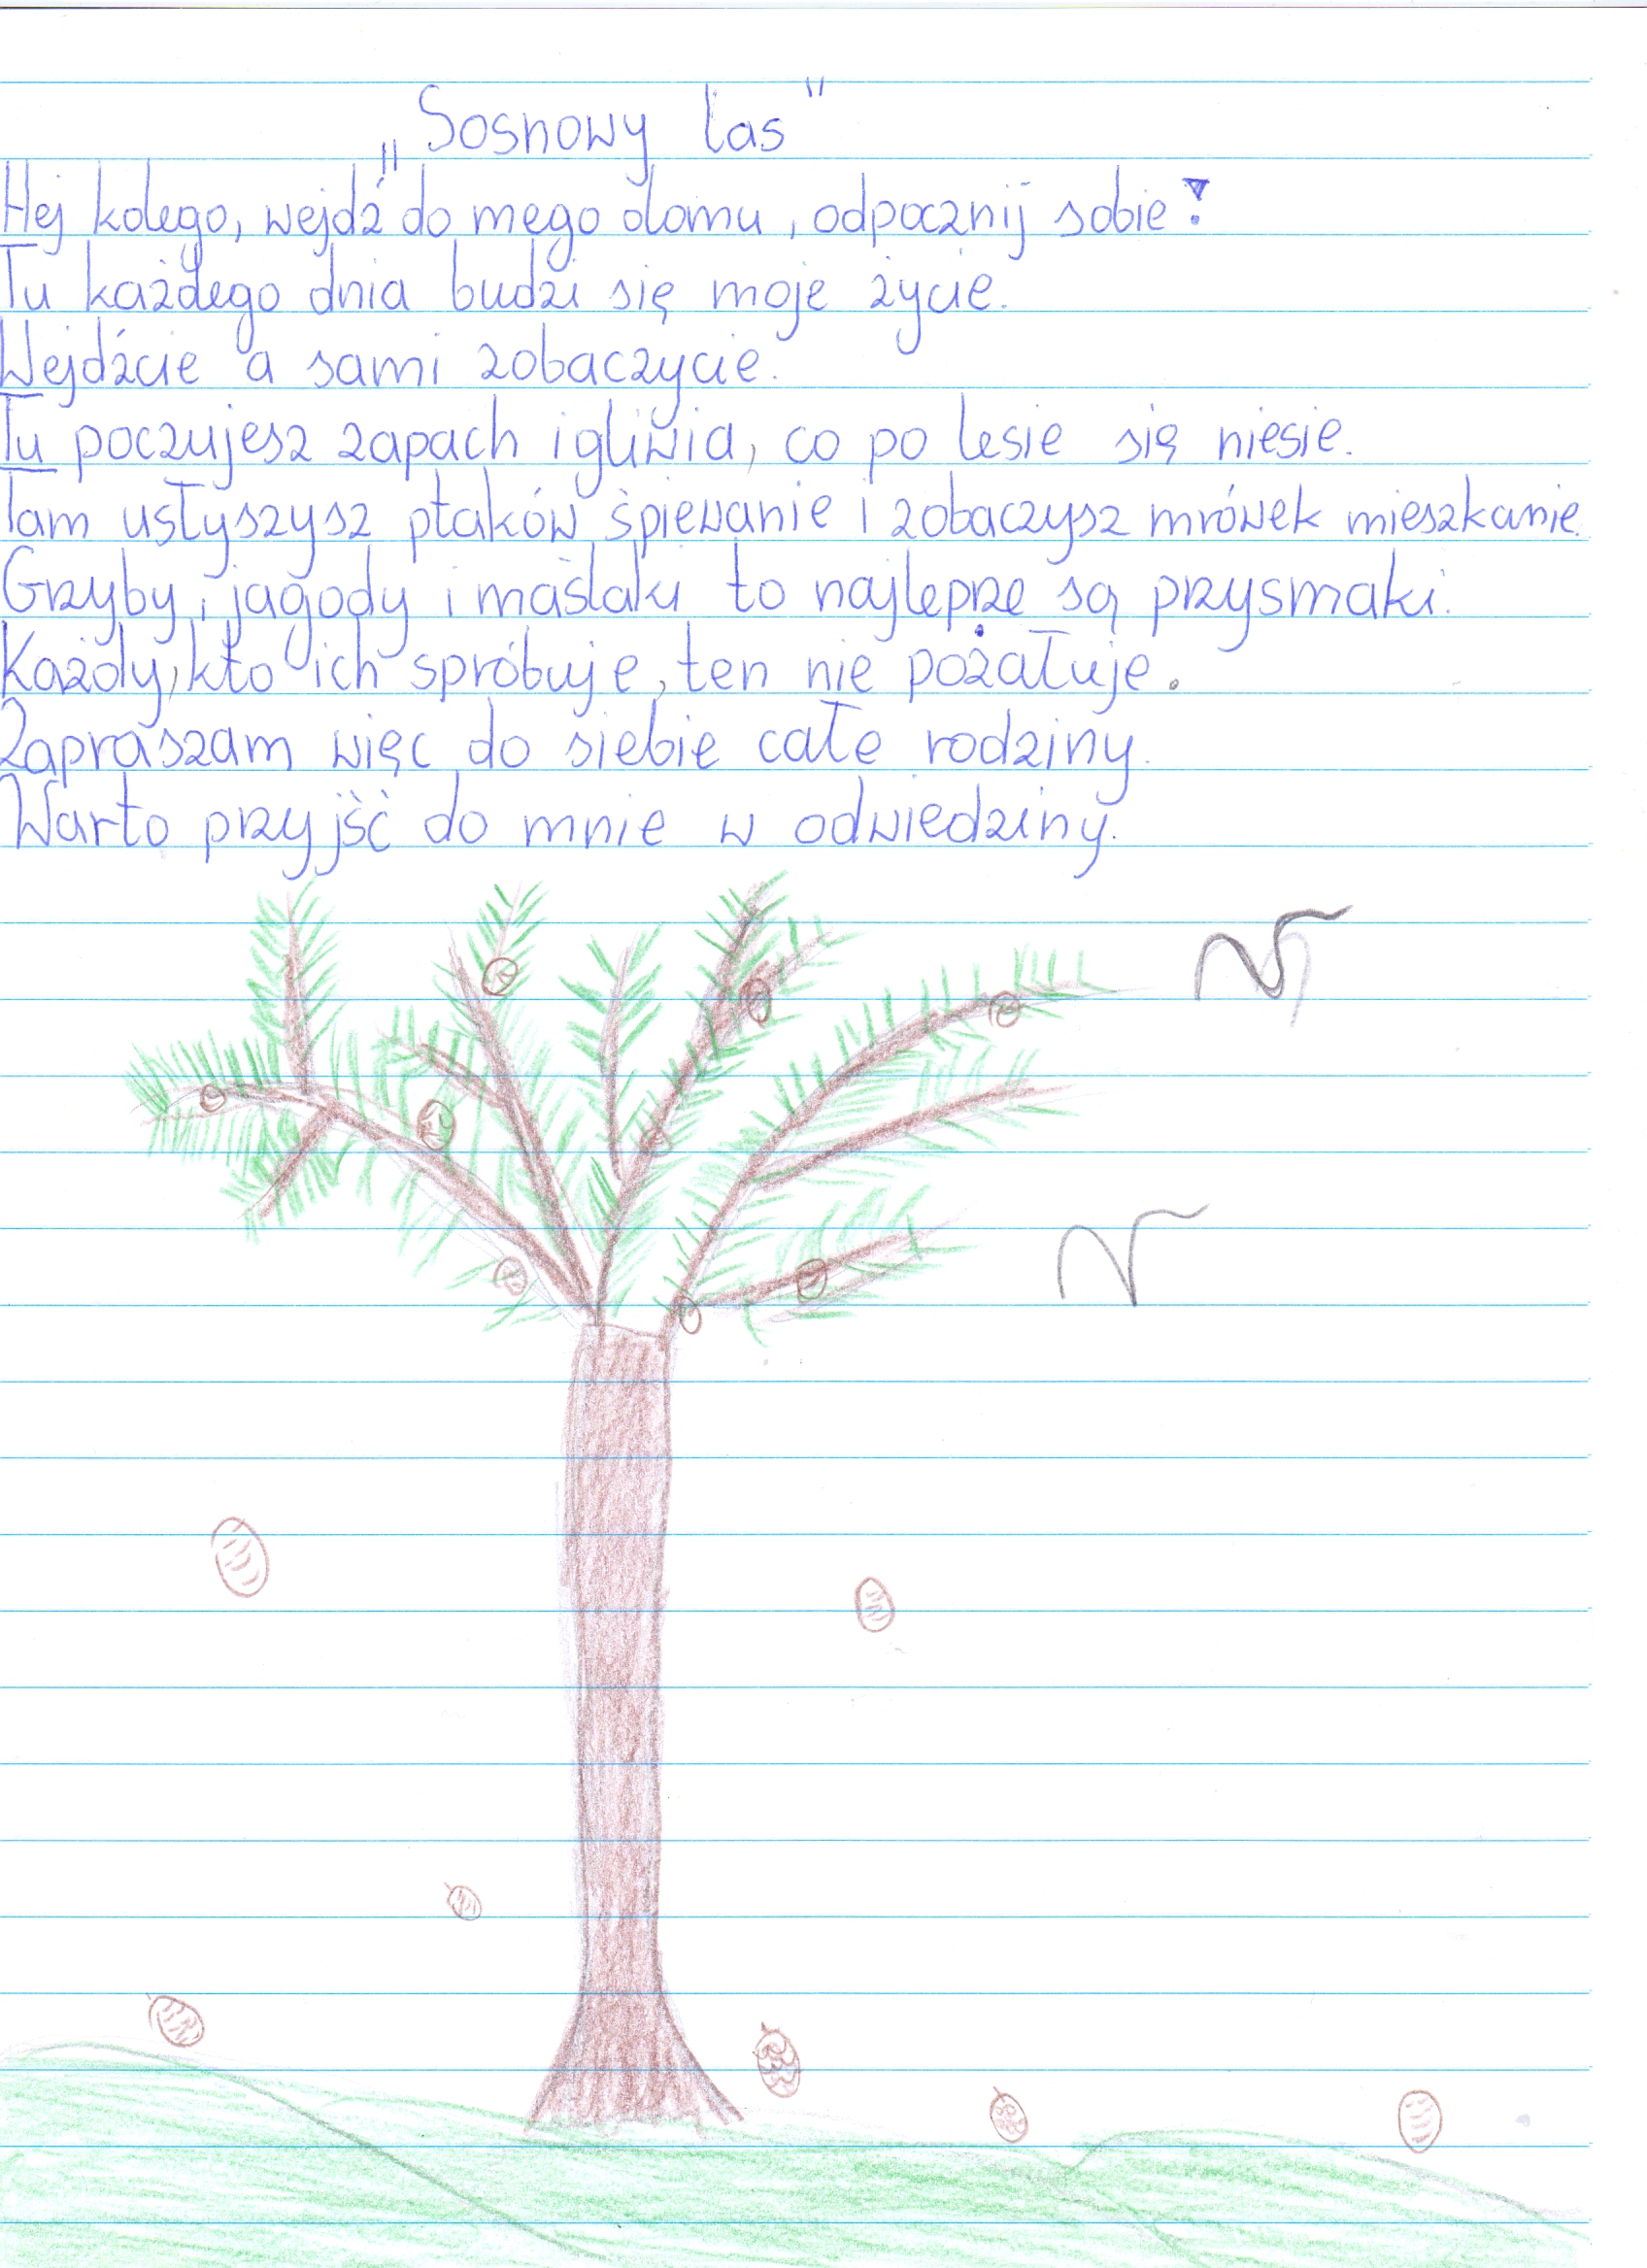 „Sosnowy las"
Hej kolego, wejdź do mego domu, odpocznij sobie!
Tu każdego dnia budzi się moje życie.
Wejdźcie a sami zobaczycie.
Tu poczujesz zapach igliwia, co po lesie się niesie.
Tam usłyszysz ptaków śpiewanie i zobaczysz mrówek mieszkanie.
Grzyby, jagody i maślaki to najleprze są przysmaki.
Każdy, kto ich spróbuje, ten nie pożałuje.
Zapraszam więc do siebie całe rodziny.
Warto przyjść do mnie w odwiedziny.